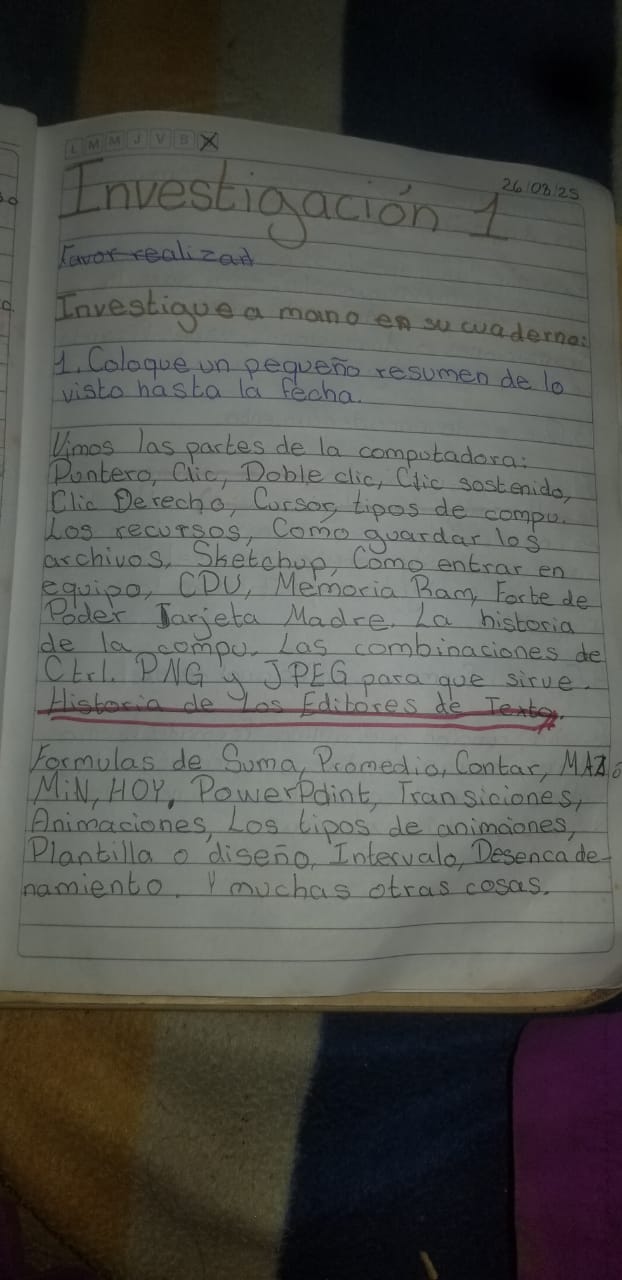 L M M J V S
26/08/25
Investigación 1
Favor realizar
Investigue a mano en su cuaderno:
1. Coloque un pequeño resumen de lo
visto hasta la fecha.
Vimos las partes de la computadora:
Puntero, Clic, Doble clic, Clic sostenido,
Clic Derecho, Cursor, tipos de compu.
Los recursos, Como guardar los
archivos, Sketchup, Como entrar en
equipo, CDU, Memoria Ram, Forte de
Poder Tarjeta Madre. La historia
de la compu. Las combinaciones de
Ctrl. PNG y JPEG para que sirve.
Historia de Los Editores de Texto.
Formulas de Suma, Promedio, Contar,
MiN, HOY, PowerPoint, Transiciones,
Animaciones, Los tipos de animaiones,
Plantilla o diseño, Intervalo, Desencade-
namiento. Y muchas otras cosas.